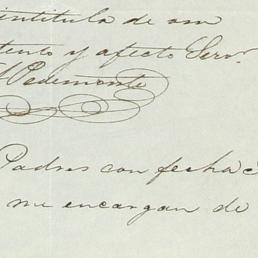 intitula de sm
tento y afecto Servr
Wedemonte
Padres con fecha
me encargan de